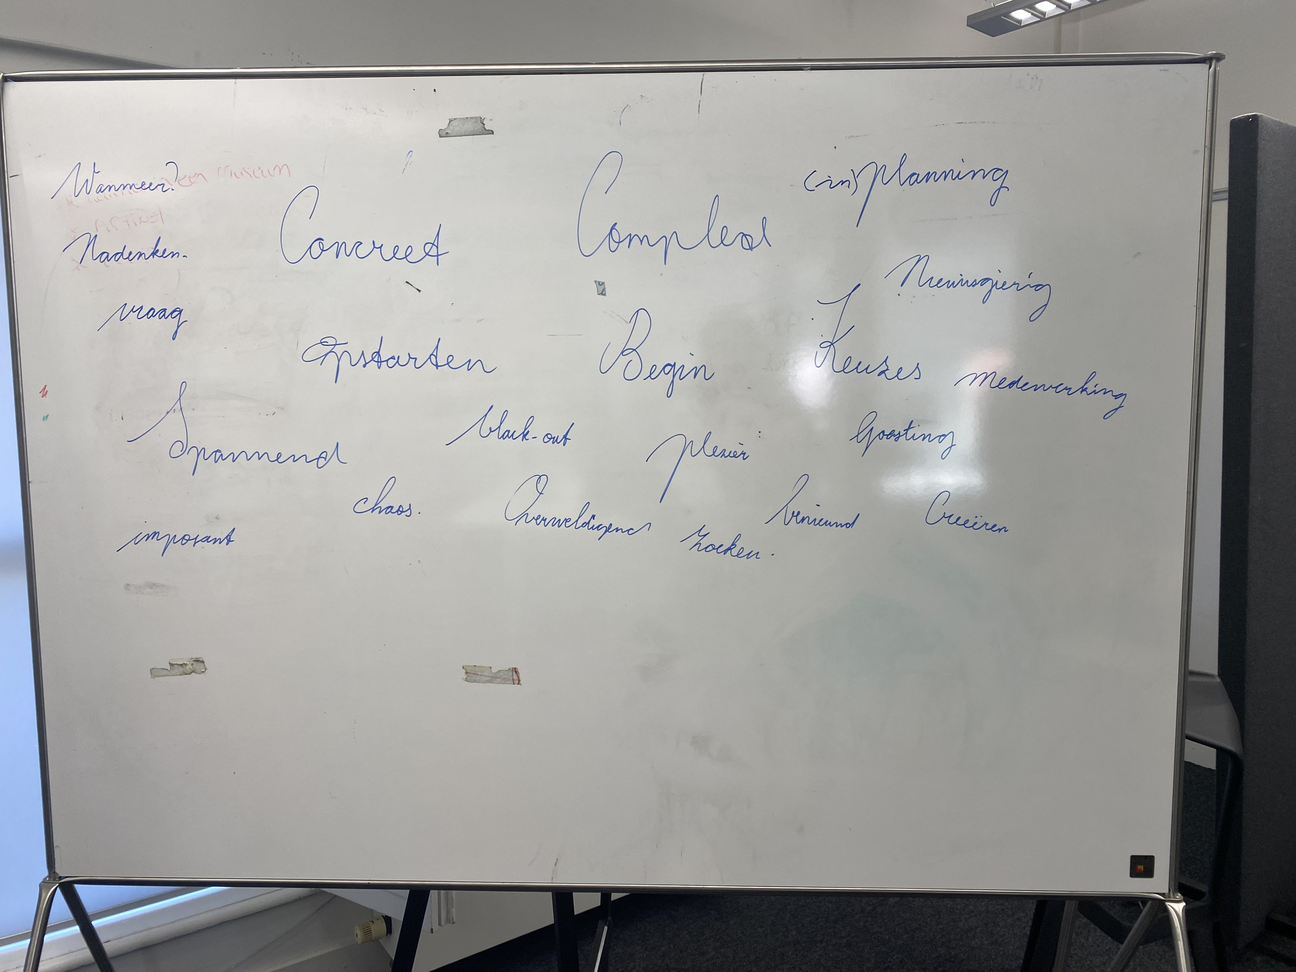 Wanneer?
(in)planning
Concreet
Complex
Nadenken.
Nieuwsgierig
vraag
Opstarten
Begin
Keuzes
medewerking
Spannend
black-out
plezier
Goesting
chaos.
Overweldigend
benieuwd
Creëren
imposant
zoeken.